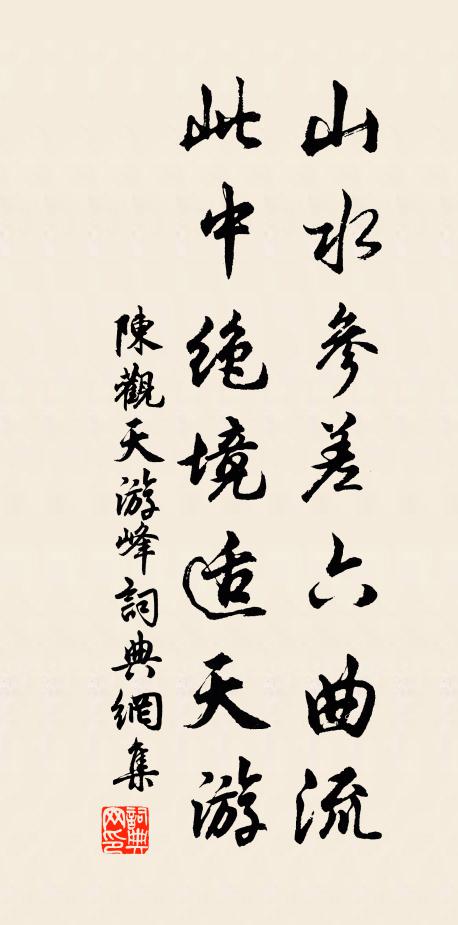 山水參差六曲流
此中絶境适天游
陳觀天游峰詞典網集
詞典网印